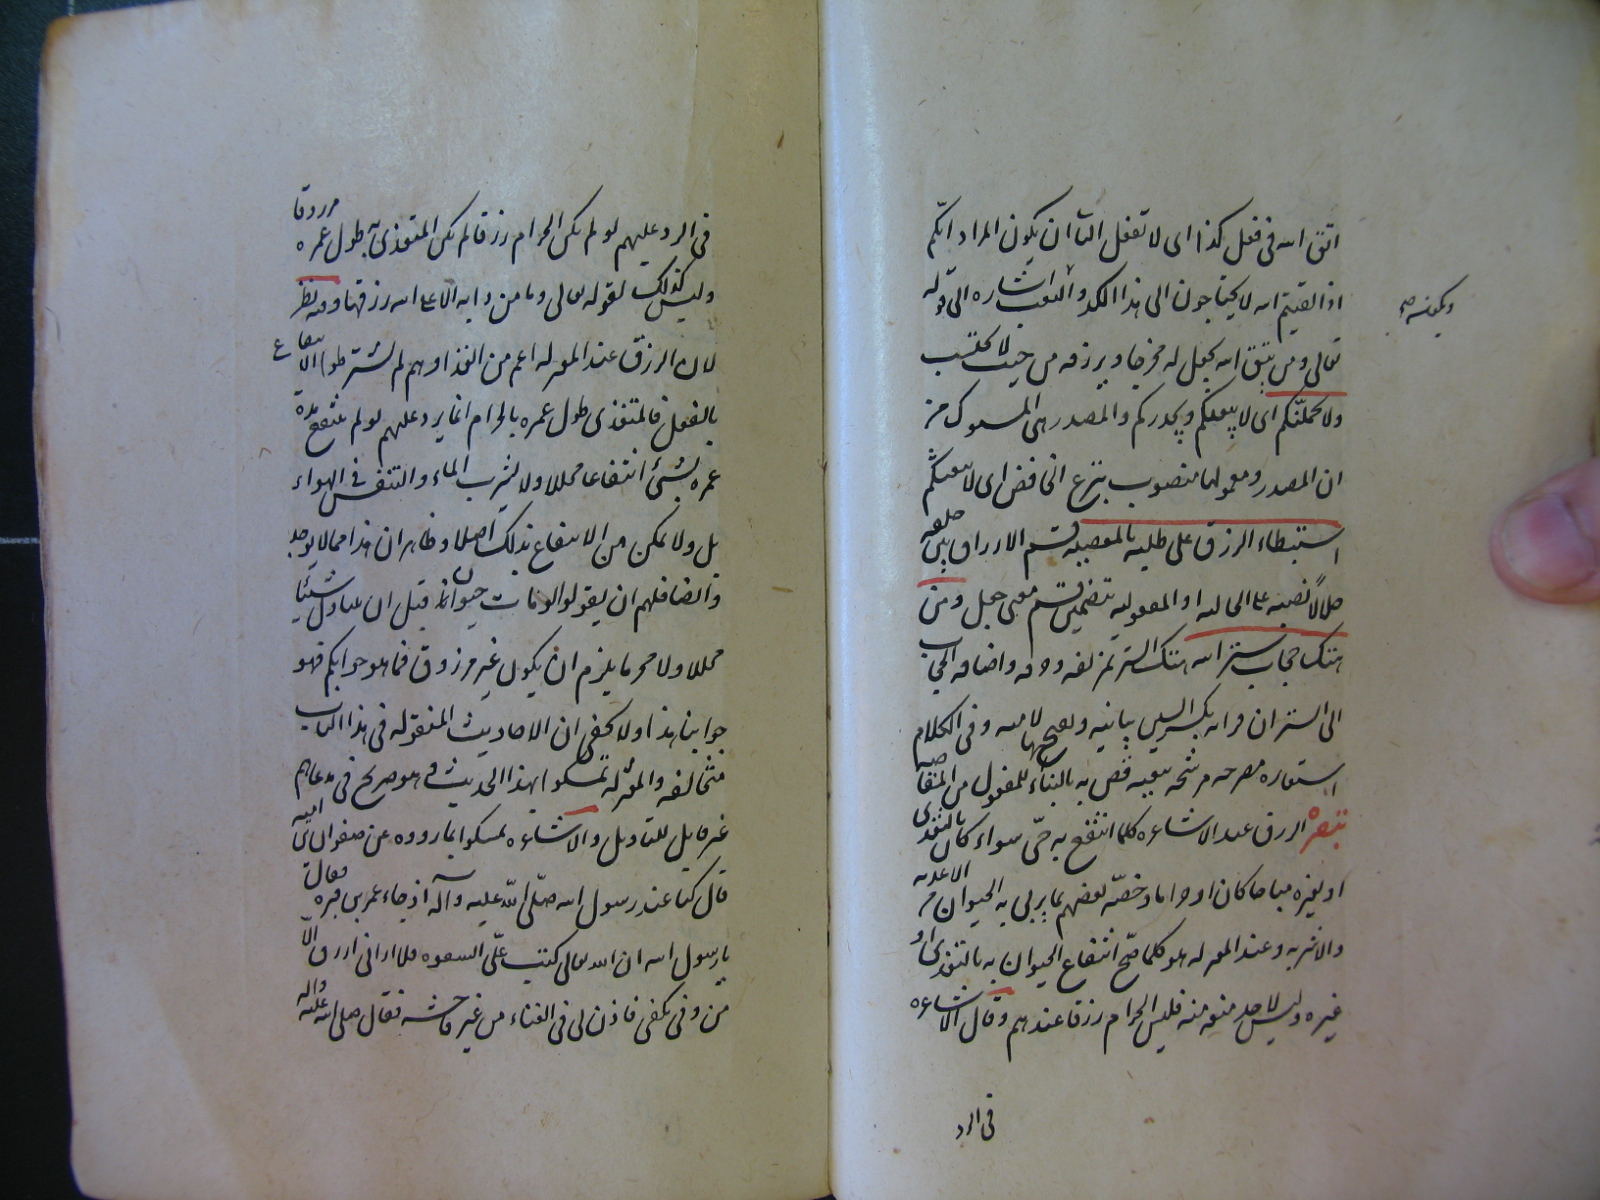 اتق الله فى فعل كذا اى لا تفعل الثانى ان يكون المراد انكم
اذا اتقيتم الله لا يحتاجون الى هذا الكد والتعب اشاره الى قوله
تعالى ومن يتق الله يجعل له مخرجا ويرزقه من حيث لا يحتسب
ولا يحملنكم اى لا يبعثكم ويحدركم والمصدر هى المسبوك من
ان المصدر ومعمولها منصوب بنزع الخافض اى لا يبعثكم
استبطاء الرزق على طلبه بالمعصيه قسم الارزاق بين خلقه
حلالا نصبه على الحاليه او المفعوليه بتضمين قسم معنى جعل ومن
هتك حجاب ستر الله هتك الستر تمزيقه وخرقه واضافه الحجاب
الى الستر ان قراته بكسر السين بيانيه وبفتحها لاميه وفى الكلام
استعاره مصرحه مرشحه تبعيه قص به بالبناء للمفعول من المقاصه
تبصره الرزق عند الاشاعره كلما انتفع به حى سواء كان بالتغذى
او بغيره مباحا كان او حراما وخصه بعضهم بما يربى به الحيوان من الاغذيه
والاشربه وعند المعتزله هو كلما صح انتفاع الحيوان به بالتغذى او
غيره وليس لاحد منعه منه فليس الحرام رزقا عندهم وقال الاشاعره
فى الرد
فى الرد عليهم لو لم يكن الحرام رزقا لم يكن المتغذى به طول عمره مرزوقا
وليس كذلك لقوله تعالى وما من دابه الا على الله رزقها وفيه نظر
لان الرزق عند المعتزله اعم من الغذا وهم لم يشترطوا الانتفاع
بالفعل فالمتغذى طول عمره بالحرام انما يرد عليهم لو لم ينتفع مدة
عمره بشئ انتفاعا محللا ولا بشرب الماء والتنفس فى الهواء
بل ولا تمكن من الانتفاع بذلك اصلا وظاهر ان هذا مما لا يوجد
وايضا فلهم ان يقولوا لو مات حيوان قبل ان يتناول شيئا
محللا ولا محرما يلزم ان يكون غير مرزوق فما هو جوابكم فهو
جوابنا هذا ولا يخفى ان الاحاديث المنقوله فى هذا الباب
متخالفه والمعتزله تمسكوا بهذا الحديث وهو صريح فى مدعاهم
غير قابل للتاويل والاشاعره تمسكوا بما رووه عن صفوان بن اميه
قال كنا عند رسول الله صلى الله عليه وآله اذ جاء عمر بن قره فقال
يا رسول الله ان الله تعالى كتب على الشقوه فلا ارانى ارزق الا
من دفى بكفى فاذن لى فى الغناء من غير فاحشه فقال صلى الله عليه واله